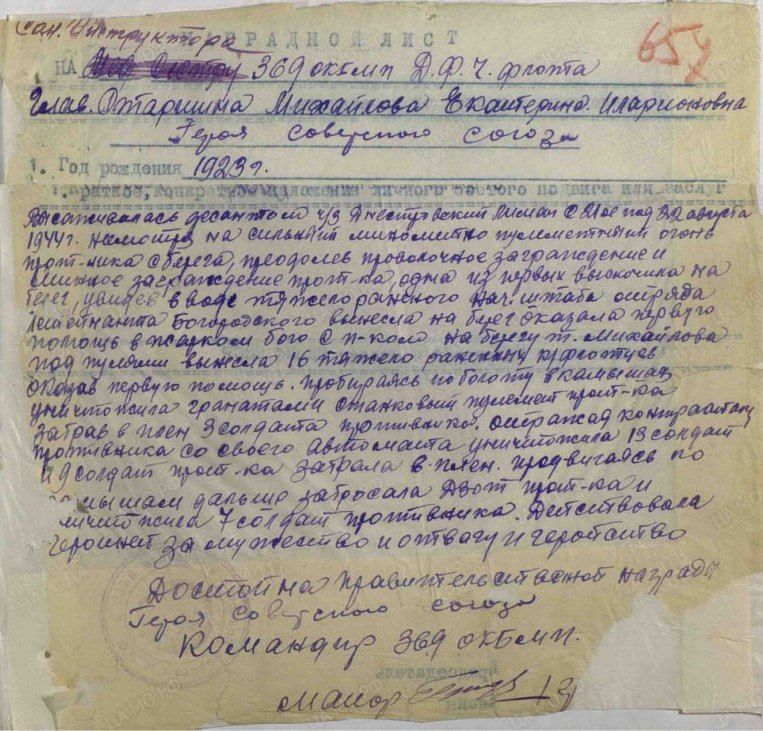 Сан. Инструктора
НАГРАДНОЙ ЛИСТ
65у
НА 369 ОКБМП Д.Ф.Ч. флота
Глав. Старшина Михайлова Екатерина Иларионовна
Героя Советского союза
1. Год рождения 1923 г.
1. Краткое, конкретное изложение личного боевого подвига или заслуг
Высаживалась десантом ч/з Днестровский лиман с 21ое под 22 августа
1944 г. несмотря на сильный минометно пулеметный огонь
прот-ника с берега, преодолев проволочное заграждение и
минное заграждение прот-ка, одна из первых выскочила на
берег, увидев в воде тяжелораненого нач. штаба отряда
лейтенанта Богородского вынесла на берег оказала первую
помощь в жарком бою с п-ком на берегу т. Михайлова
под пулями вынесла 16 тяжело раненных кр/флотцев
оказав первую помощь. пробираясь по болоту в камышах
уничтожила гранатами станковый пулемет прот-ка
забрав в плен 3 солдата противника. отражая контратаку
противника со своего автомата уничтожила 13 солдат
и 9 солдат прот-ка забрала в плен. продвигаясь по
камышам дальше забросала дзот прот-ка и
уничтожила 7 солдат противника. Действовала
героиней за мужество и отвагу и геройство
Достойна правительственной награды
Героя Советского союза
Командир 369 ОКБМП.
председатель
майор